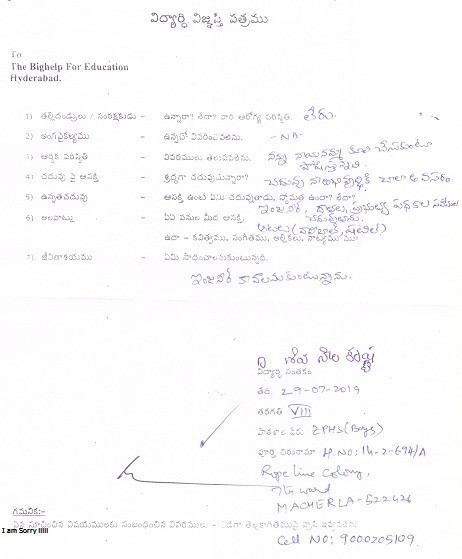 విద్యార్థి విజ్ఞప్తి పత్రము
To
The Bighelp For Education
Hyderabad.
1) తల్లిదండ్రులు / సంరక్షకుడు - ఉన్నారా? లేదా? వారి ఆరోగ్య పరిస్థితి. లేరు.
2) అంగవైకల్యము - ఉన్నచో వివరించవలెను. -NA-
3) ఆర్థిక పరిస్థితి - వివరములు తెలుపవలెను. నన్ను నాయనమ్మ కూలి చేసుకుంటూ
4) చదువు పై ఆసక్తి - శ్రద్ధగా చదువుచున్నారా? చదువు నా చాలా అవసరం
5) ఉన్నతచదువు - ఆసక్తి ఉంటే ఏమి చదువుతాడు, స్తోమత్త ఉందా? లేదా?
ఇంజనీర్,
6) అలవాట్లు - ఏఏ పనుల మీద ఆసక్తి. చదువుతాను.
ఆటలు
ఉదా - కవిత్వము, సంగీతము, అల్లికలు, నాట్యము
7) జీవితాశయము - ఏమి సాధించాలనుకుంటున్నది.
ఇంజనీర్ కావాలనుకుంటున్నాను.
విద్యార్థి సంతకం
తేది. 29-07-2019
తరగతి VIII
పాఠశాల పేరు ZPHS(Boys)
పూర్తి చిరునామా H NO: 14-2-694/A
Rope line Colony,
7th ward
MACHERLA-522426
Cell NO: 9000205109.
గమనిక:-
పైన సూచించిన విషయములకు సంబంధించిన వివరములు
I am Sorry lllll